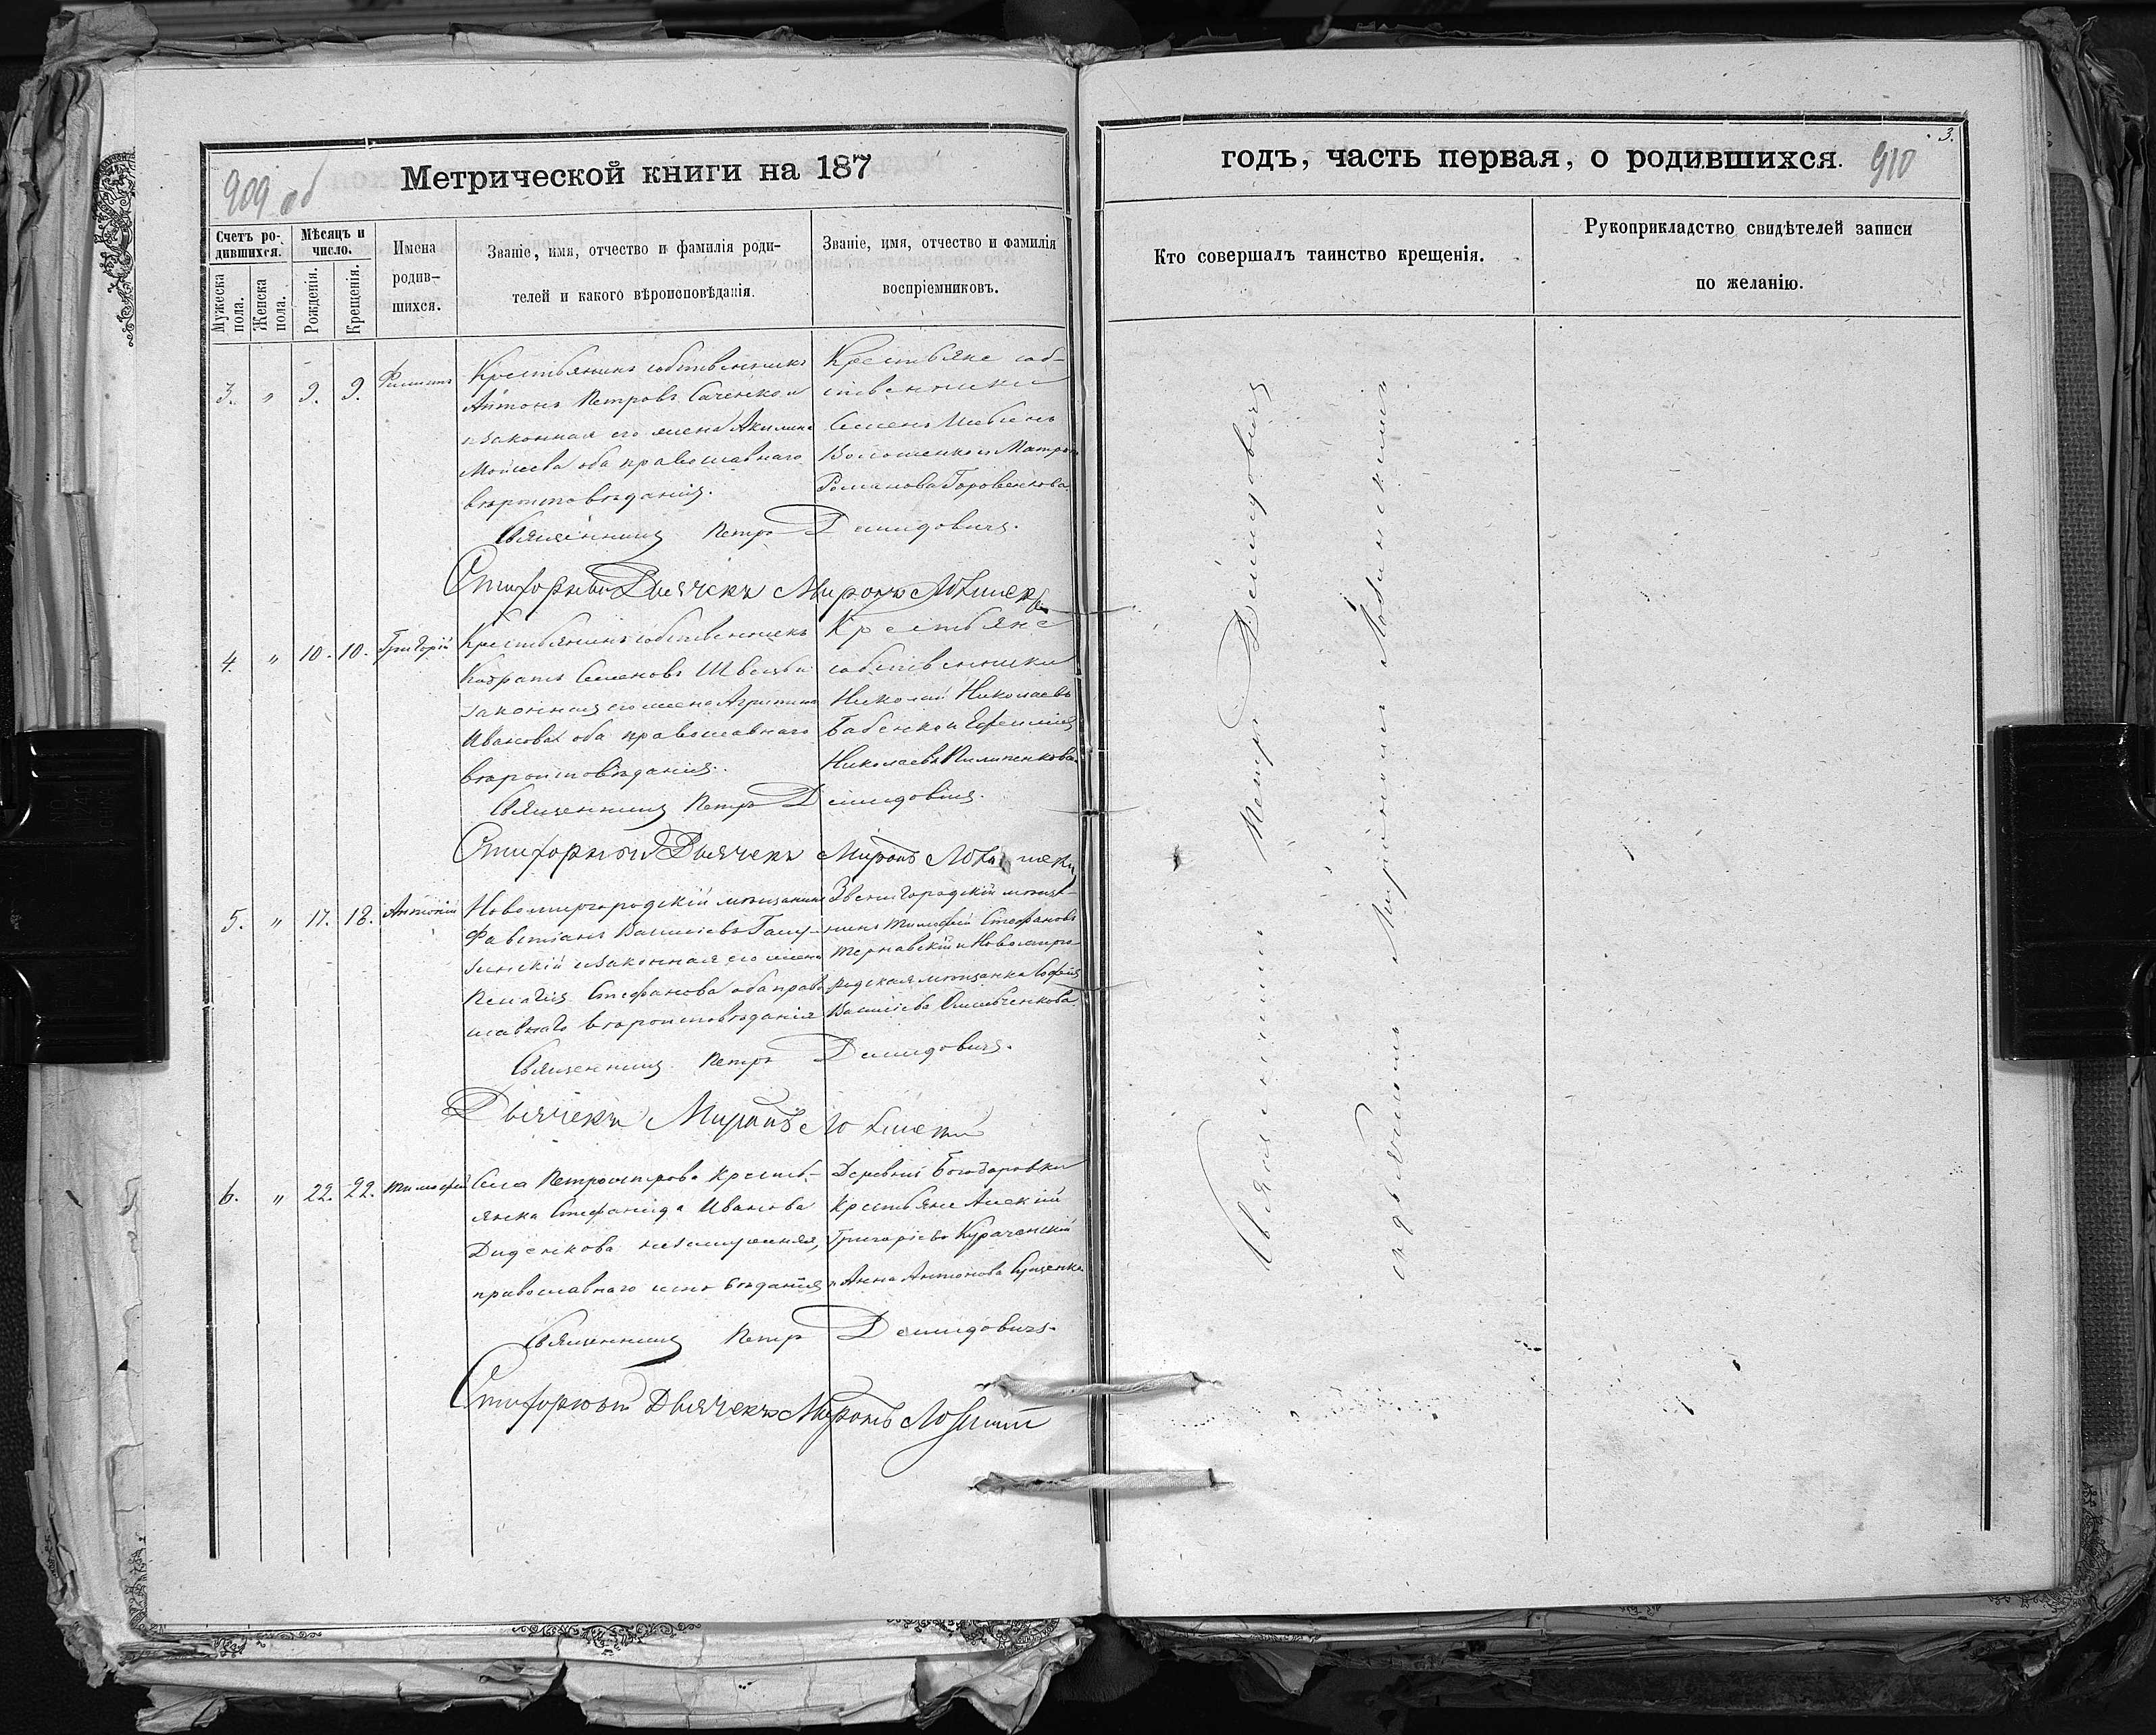 909 об
Метрической книги на 187
Счетъ ро-
дившихся.
Мѣсяцъ и
число.
Имена
родив-
шихся.
Званіе, имя, отчество и фамилія роди-
телей и какого вѣроисповѣданія.
Званіе, имя, отчество и фамилія
воспріемниковъ.
Мужеска
пола.
Женска
пола.
Рожденія.
Крещенія.
3. " 9. 9. Филипъ
Крестьянинъ собственникъ
Антонъ Петровъ Саченко и
законная его жена Акилина
Моисеева оба православнаго
вѣроисповѣданія.
Крестьяне соб-
ственники
Семенъ
Романова Горовенкова.
Священникъ Петръ Демидовичъ.
Стихарный Дьячекъ Миронъ
4. " 10. 10. Григорій
Крестьянинъ собственникъ
Кодратъ Семеновъ Швецъ и
законная его жена Агрипина
Иванова оба православнаго
вѣроисповѣданія.
Крестьяне
собственники
Николай Николаевъ
Бабенко и Ефимія
Николаева Пилипенкова.
Священникъ Петръ Демидовичъ.
Стихарный Дьячекъ Миронъ
5. " 17. 18. Антоній
Новомиргородскій мѣщанинъ
Василіевъ
законная его жена
Пелагія Стефанова оба право
славнаго вѣроисповѣданія
Звенигородскій мѣща-
нинъ Тимофей Стефановъ
Тернавскій и Новомирго
родская мѣщанка Софія
Василіева
Священникъ Петръ Демидовичъ.
Дьячекъ Миронъ
6. " 22. 22. Тимофей
Села Петроострова Крестья-
янка Стефанида Иванова
Диденкова незамужняя,
православнаго исповѣданія
Деревни
Крестьяне Алексій
Григоріевъ
и Анна Антонова
Священникъ Петръ Демидовичъ.
Стихарный Дьячекъ Миронъ
3.
годъ, часть первая, о родившихся.
910
Кто совершалъ таинство крещенія.
Рукоприкладство свидѣтелей записи
по желанію.
Священникъ Петръ Демидовичъ
съ дьячкомъ Мирономъ